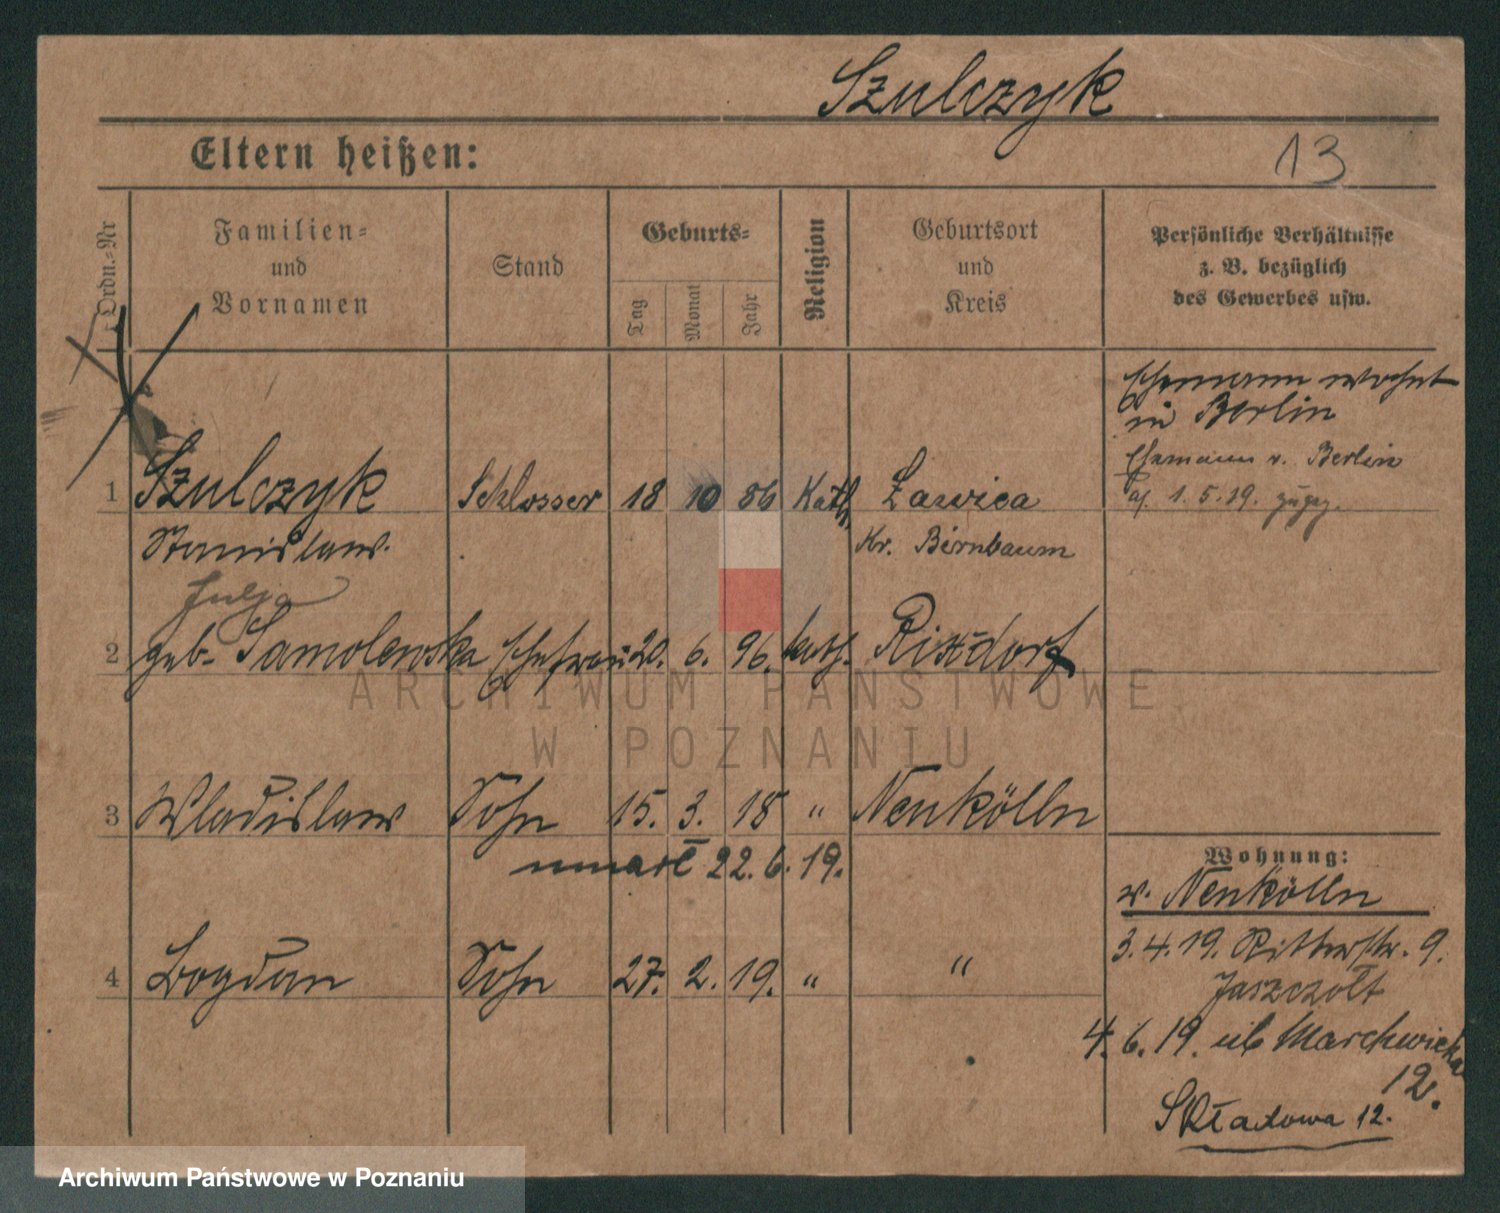 Szulczyk
Eltern heißen:
13
Ordn.-Nr
Familien-
und
Vornamen
Stand
Geburts-
Tag
Monat
Jahr
Religion
Geburtsort
und
Kreis
Persönliche Verhältnisse
z. B. bezüglich
des Gewerbes usw.
Ehemann wohnt
in Berlin
Ehemann v. Berlin
1.5.19.
1 Szulczyk Schlosser 18 10 86 Kath. Ławica
Stanislaw. Kr. Birnbaum
Julja
2 geb. Samolewska Ehefrau 20. 6. 96. kath. Rixdorf
3 Wladislaw Sohn 15. 3. 18 " Neukölln
22.6.19.
4 Bogdan Sohn 27. 2. 19. " "
Wohnung:
v. Neukölln
3.4.19. Ritterstr. 9.
Jaszczołt
4.6.19. ub Marchwicka
12.
Składowa 12.
ARCHIWUM PAŃSTWOWE
W POZNANIU
Archiwum Państwowe w Poznaniu